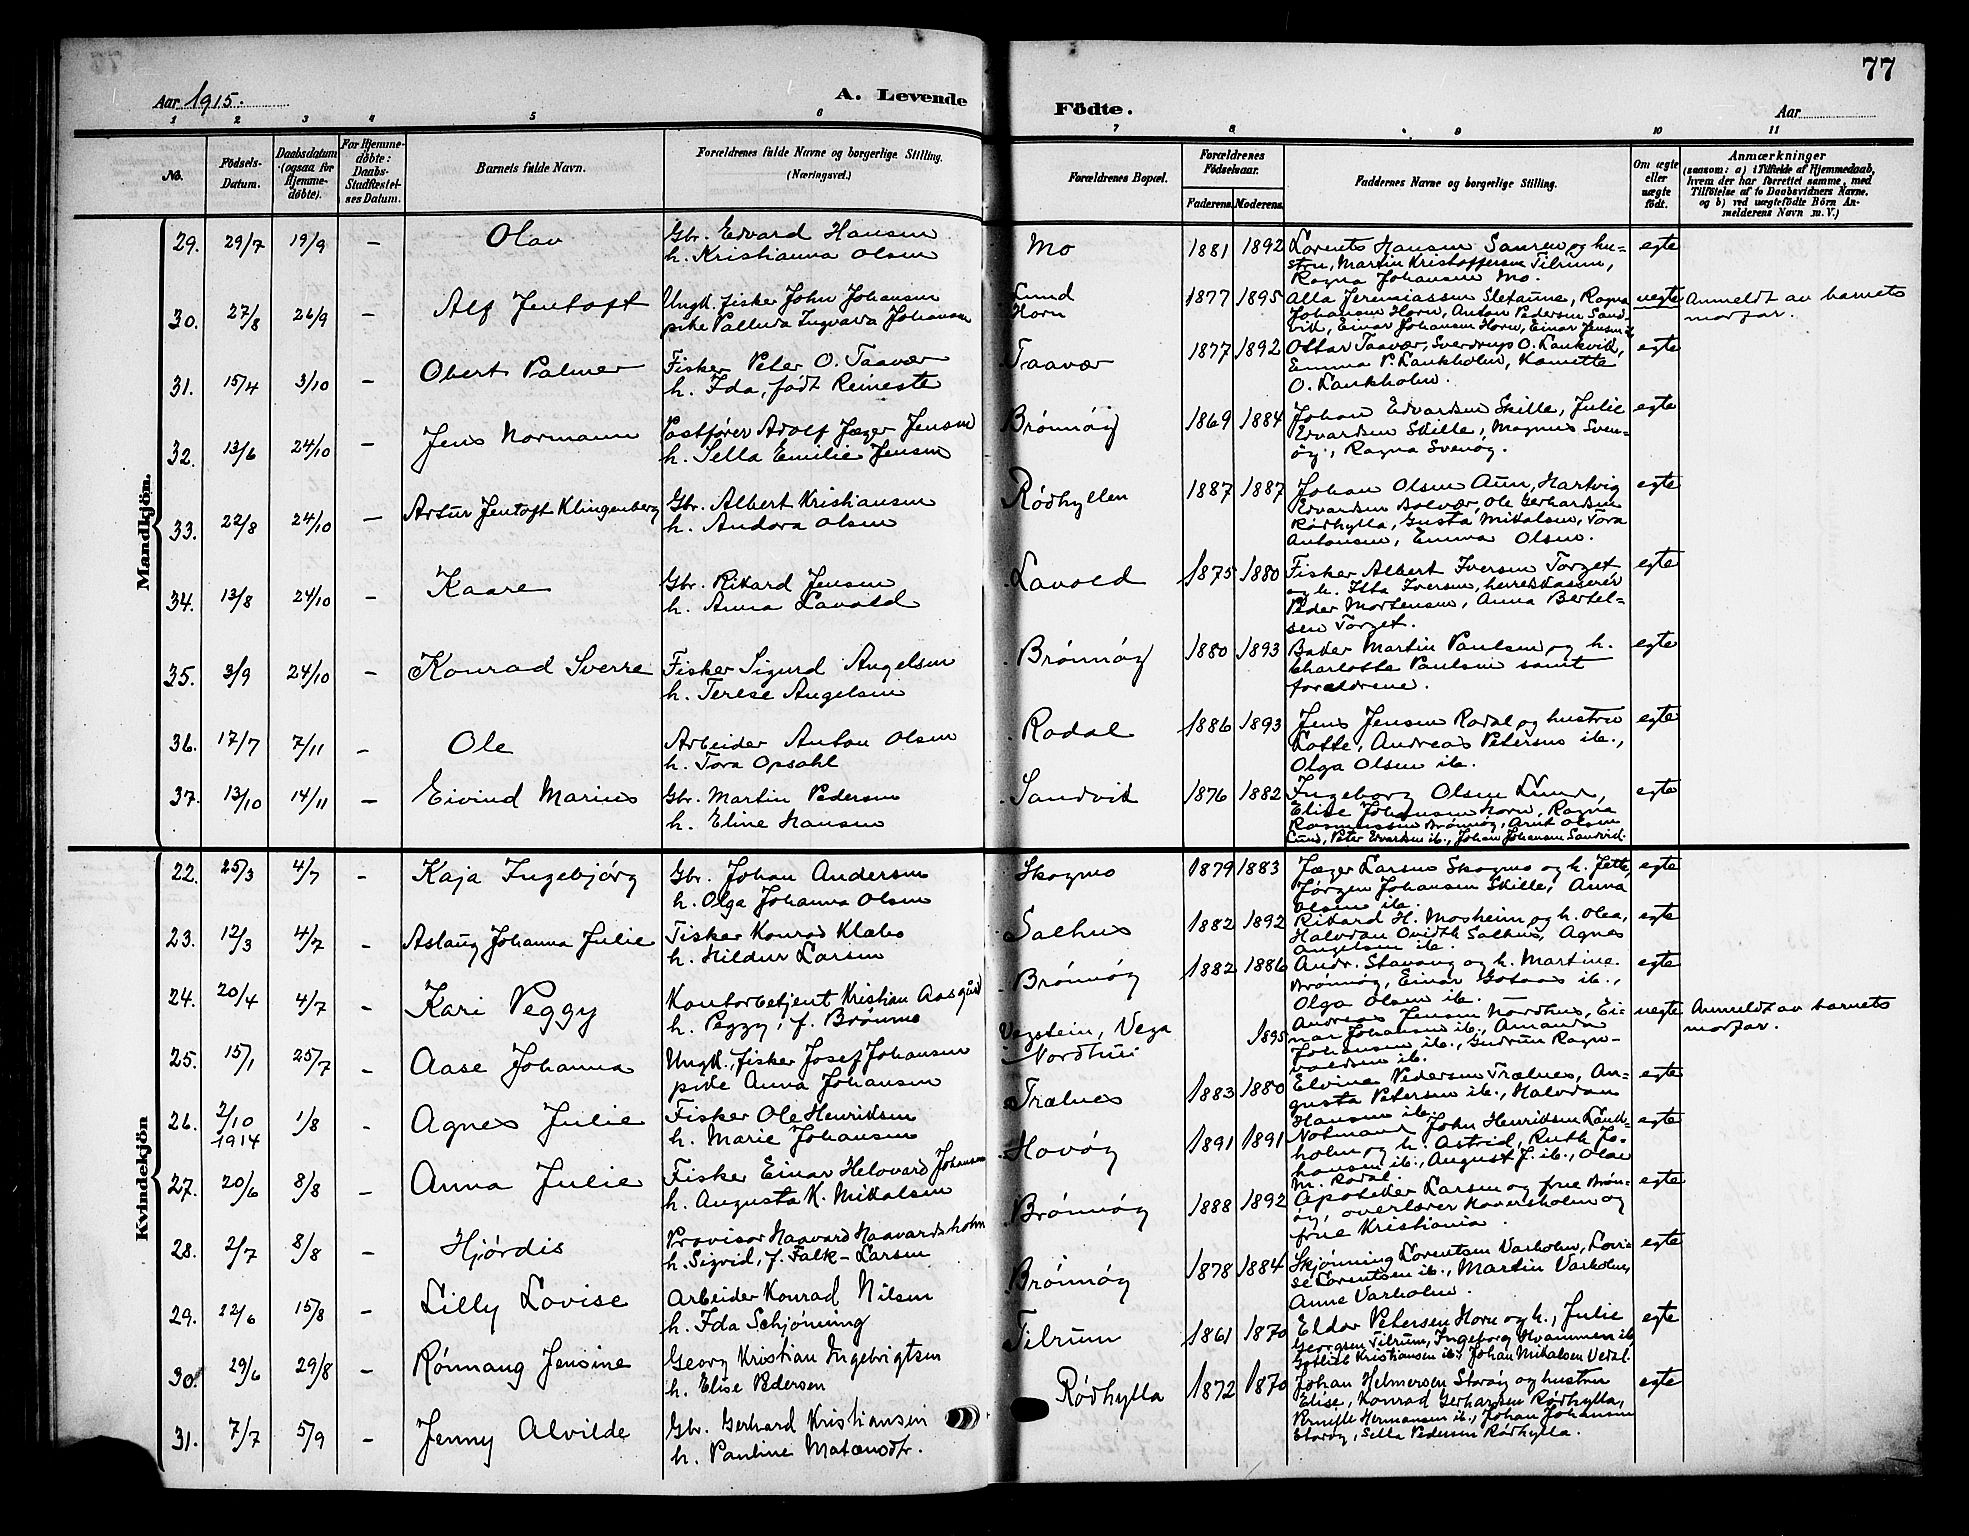 77
Aar 1915.
A. Levende
Födte.
Aar
1 2 3 4 5 6 7 8 9 10 11
No.
Födsels-
Datum.
Daabsdatum
(ogsaa for
Hjemme-
döbte).
For Hjemme-
döbte:
Daabs-
Stadfæstel-
ses Datum.
Barnets fulde Navn.
Forældrenes fulde Navne og borgerlige Stilling.
(Næringsvei.)
Forældrenes Bopæl.
Forældrenes
Födselsaar.
Faderens. Moderens.
Faddernes Navne og borgerlige Stilling.
Om ægte
eller
uægte
födt.
Anmærkninger
(saasom: a) i Tilfælde af Hjemmedaab,
hvem der har forrettet samme, med
Tilföielse af to Daabsvidners Navne.
og b) ved uægtefödte Börn An-
melderens Navn m. V.)
Mandkjön.
29. 29/7 19/9 - Olav
Gbr. Edvard Hansen
h. Kristianna Olsen
Mo 1881 1892
Lorents Hansen Sauren og hu-
stru, Martin Kristoffersen Tilrum,
Ragna Johansen Mo.
egte
30. 27/8 26/9 - Alf Jentoft
Ungk. fisker John Johansen
pike Palluda Ingvarda Johansen
Lund
Horn
1877 1895
Alla Jeremiassen Sletaune, Ragna
Johansen Horn, Anton Pedersen Sand-
vik, Einar Johansen Horn, Einar Jensen
uegte
Anmeldt av barnets
morfar.
31. 15/4 3/10 - Obert Palmer
Fisker Peter O. Taavær
h. Ida, født Remeste
Taavær 1877 1892
Ottar Taavær, Sverdrup O. Lankvik,
Emma P. Lankholm, Kamitte
O. Lankholm.
egte
32. 13/6 24/10 - Jens Normann
Postfører Adolf Jæger Jensen
h. Sella Emilie Jensen
Brønnøy 1869 1884
Johan Edvardsen Skille, Julie
Edvardsen Skille, Magnus Sven-
øy, Ragna Svenøy.
egte
33. 22/8 24/10 - Artur Jentoft Klingenberg
Gbr. Albert Kristiansen
h. Andora Olsen
Rødhyllen 1887 1887
Johan Olsen Aun, Hartvig
Edvardsen Solvær, Ole Gerhardsen
Rødhylla, Gusta Mikalsen, Tora
Antonsen, Emma Olsen.
egte
34. 13/8 24/10 - Kaare
Gbr. Rikard Jensen
h. Anna Lavold
Lavold 1875 1880
Fisker Albert Iversen Torget
og h. Ilta Iversen, herredskasserer
Peder Mortensen, Anna Bertel-
sen Torget.
egte
35. 3/9 24/10 - Konrad Sverre
Fisker Sigurd Angelsen
h. Terese Angelsen
Brønnøy 1880 1893
Bader Martin Paulsen og h.
Charlotte Paulsen samt
forældrene.
egte
36. 17/7 7/11 - Ole
Arbeider Anton Olsen
h. Tora Opsahl
Rodal 1886 1893
Jens Jensen Rodal og hustru
Lotte, Andreas Petersen ib.,
Olga Olsen ib.
egte
37. 13/10 14/11 - Eivind Marius
Gbr. Martin Pedersen
h. Eline Hansen
Sandvik 1876 1882
Ingeborg Olsen Lund,
Elise Johansen Horn, Ragna
Rasmussen Brønnøy, Arnt Olsen
Lund, Peter Edvardsen ib., Johan Johansen Sandvik.
egte
Kvindekjön
22. 25/3 4/7 - Kaja Ingebjørg
Gbr. Johan Andersen
h. Olga Johanna Olsen
Skogmo 1879 1883
Jæger Larsen Skogmo og h. Jette,
Jørgen Johansen Skille, Anna
Olsen ib.
egte
23. 12/3 4/7 - Aslaug Johanna Julie
Fisker Konrad Klæbo
h. Hildur Larsen
Salhus 1882 1892
Rikard H. Mosheim og h. Olea,
Halvdan Ovidth Salhus, Agnes
Angelsen ib.
egte
24. 20/4 4/7 - Kari Peggy
Kontorbetjent Kristian Aasgård
h. Peggy, f. Brønmo
Brønnøy 1882 1886
Andr. Stavang og h. Martine
Brønnøy, Einar Gotaas ib.,
Olga Olsen ib.
egte
25. 15/1 25/7 - Aase Johanna
Ungk., fisker Josef Johansen
pike Anna Johansen
Vegstein, Vega
Nordhus
1895
Andreas Jensen Nordhus, Ei-
nar Johansen ib., Amanda
Johansen ib., Gudrun Ragn-
valdsen ib.
uegte
Anmeldt av barnets
morfar.
26. 2/10 1914 1/8 - Agnes Julie
Fisker Ole Henriksen
h. Marie Johansen
Trælnes 1883 1880
Elvine Pedersen Trælnes, Au-
gusta Petersen ib., Halvdan
Hansen ib.
egte
27. 20/6 8/8 - Anna Julie
Fisker Einar Helovard Johansen
h. Augusta K. Mikalsen
Havøy 1891 1891
Notmand John Henriksen Lank-
holm og h. Astrid, Ruth Jo-
hansen ib., August J. ib., Olav
M. Rodal.
egte
28. 2/7 8/8 - Hjørdis
Provisor Haavard Haavardsholm
h. Sigrid, f. Falk-Larsen
Brønnøy 1888 1892
Apoteker Larsen og frue Brøn-
øy, overlærer Haversholm og
frue Kristiania.
egte
29. 12/6 15/8 - Lilly Lovise
Arbeider Konrad Nilsen
h. Ida Schjønning
Brønnøy 1878 1884
Skjønning Lorentsen Varholm, Lovi-
se Lorentsen ib., Martin Varholm,
Anne Varholm.
egte
30. 29/6 29/8 - Rønnaug Jensine
Georg Kristian Ingebrigtsen
h. Elise Pedersen
Tilrum 1861 1870
Eldor Petersen Horn og h., Julie
Georgsen Tilrum, Ingeborg Hvammen ib.
Gotlieb Kristiansen ib., Johan Mikalsen Vedal.
egte
31. 7/7 5/9 - Jenny Alvilde
Gbr. Gerhard Kristiansen
h. Pauline Matæusdtr.
Rødhylla 1872 1870
Johan Helmersen Storøy og hustru
Elise, Konrad Gerhardsen Rødhylla,
Pernille Hermansen ib., Johan Johansen
Storøy, Sella Pedersen Rødhylla.
egte